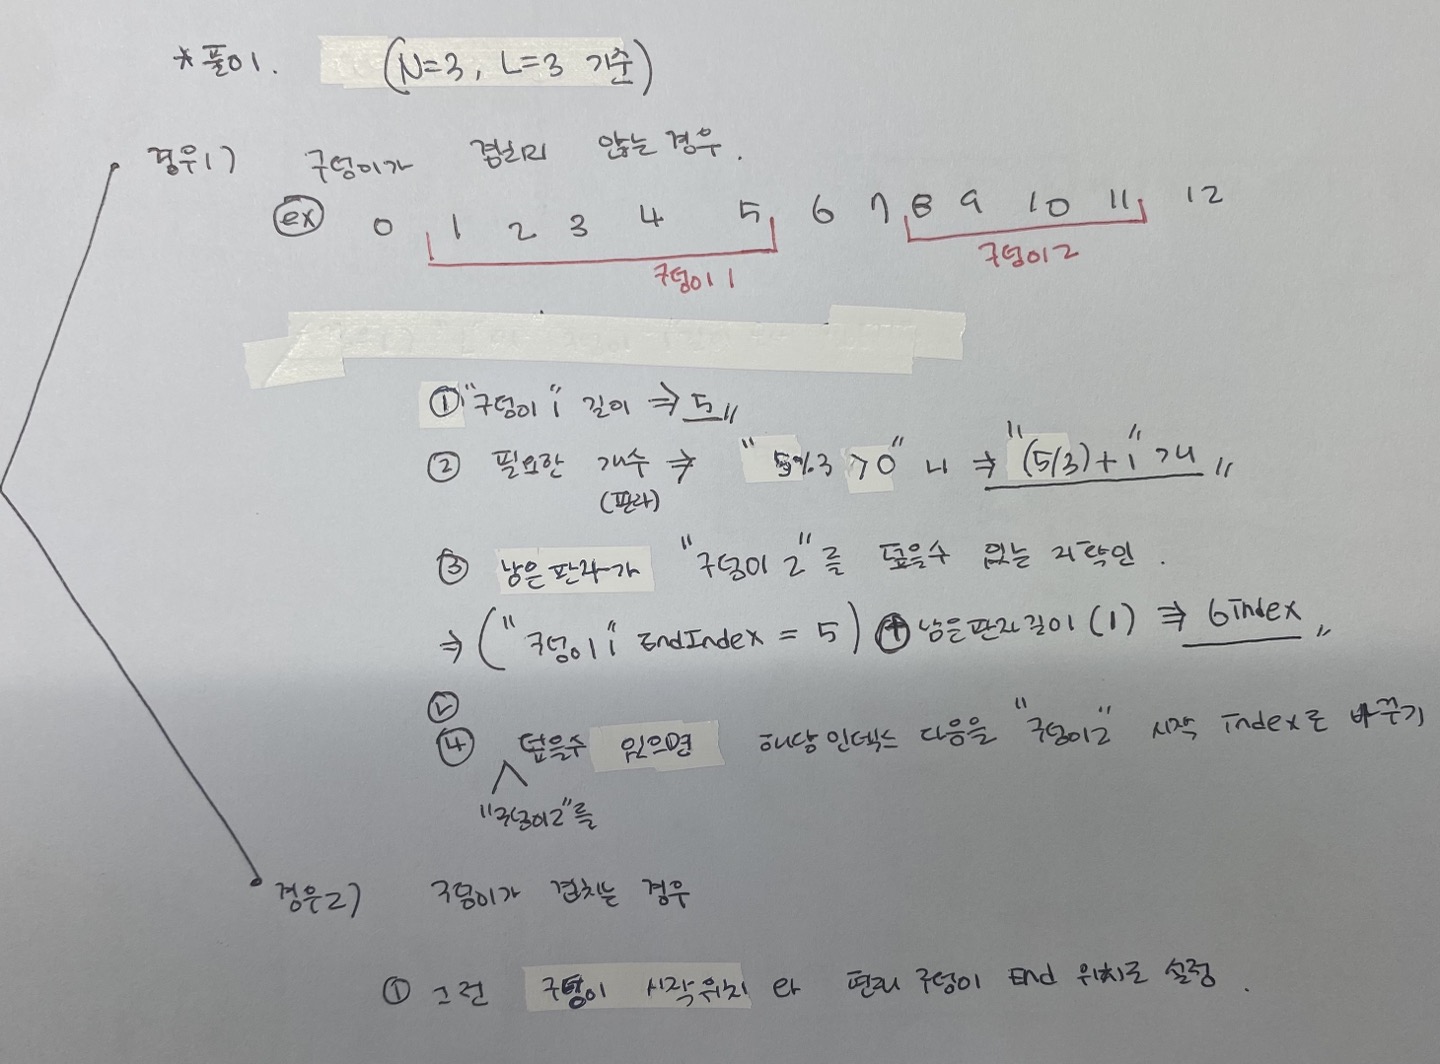 * 풀이. (N=3, L=3 기준)
경우1) 구덩이가 겹치지 않는 경우.
ex 0 1 2 3 4 5 6 7 8 9 10 11 12
구덩이1 구덩이2
① "구덩이1" 길이 ⇒ 5〃
② 필요한 개수 ⇒ "5%3 >0" 니 ⇒ "(5/3)+1" 개〃
(판자)
③ 남은판자가 "구덩이2"를 덮을수 있는지 확인.
⇒ ("구덩이1" EndIndex = 5) + 남은판자길이(1) ⇒ 6index〃
④ 덮을수 있으면 해당인덱스 다음을 "구덩이2" 시작 index로 바꾸기
"구덩이2"를
경우2) 구덩이가 겹치는 경우
① 그전 구덩이 시작위치 와 현재 구덩이 End 위치로 설정.